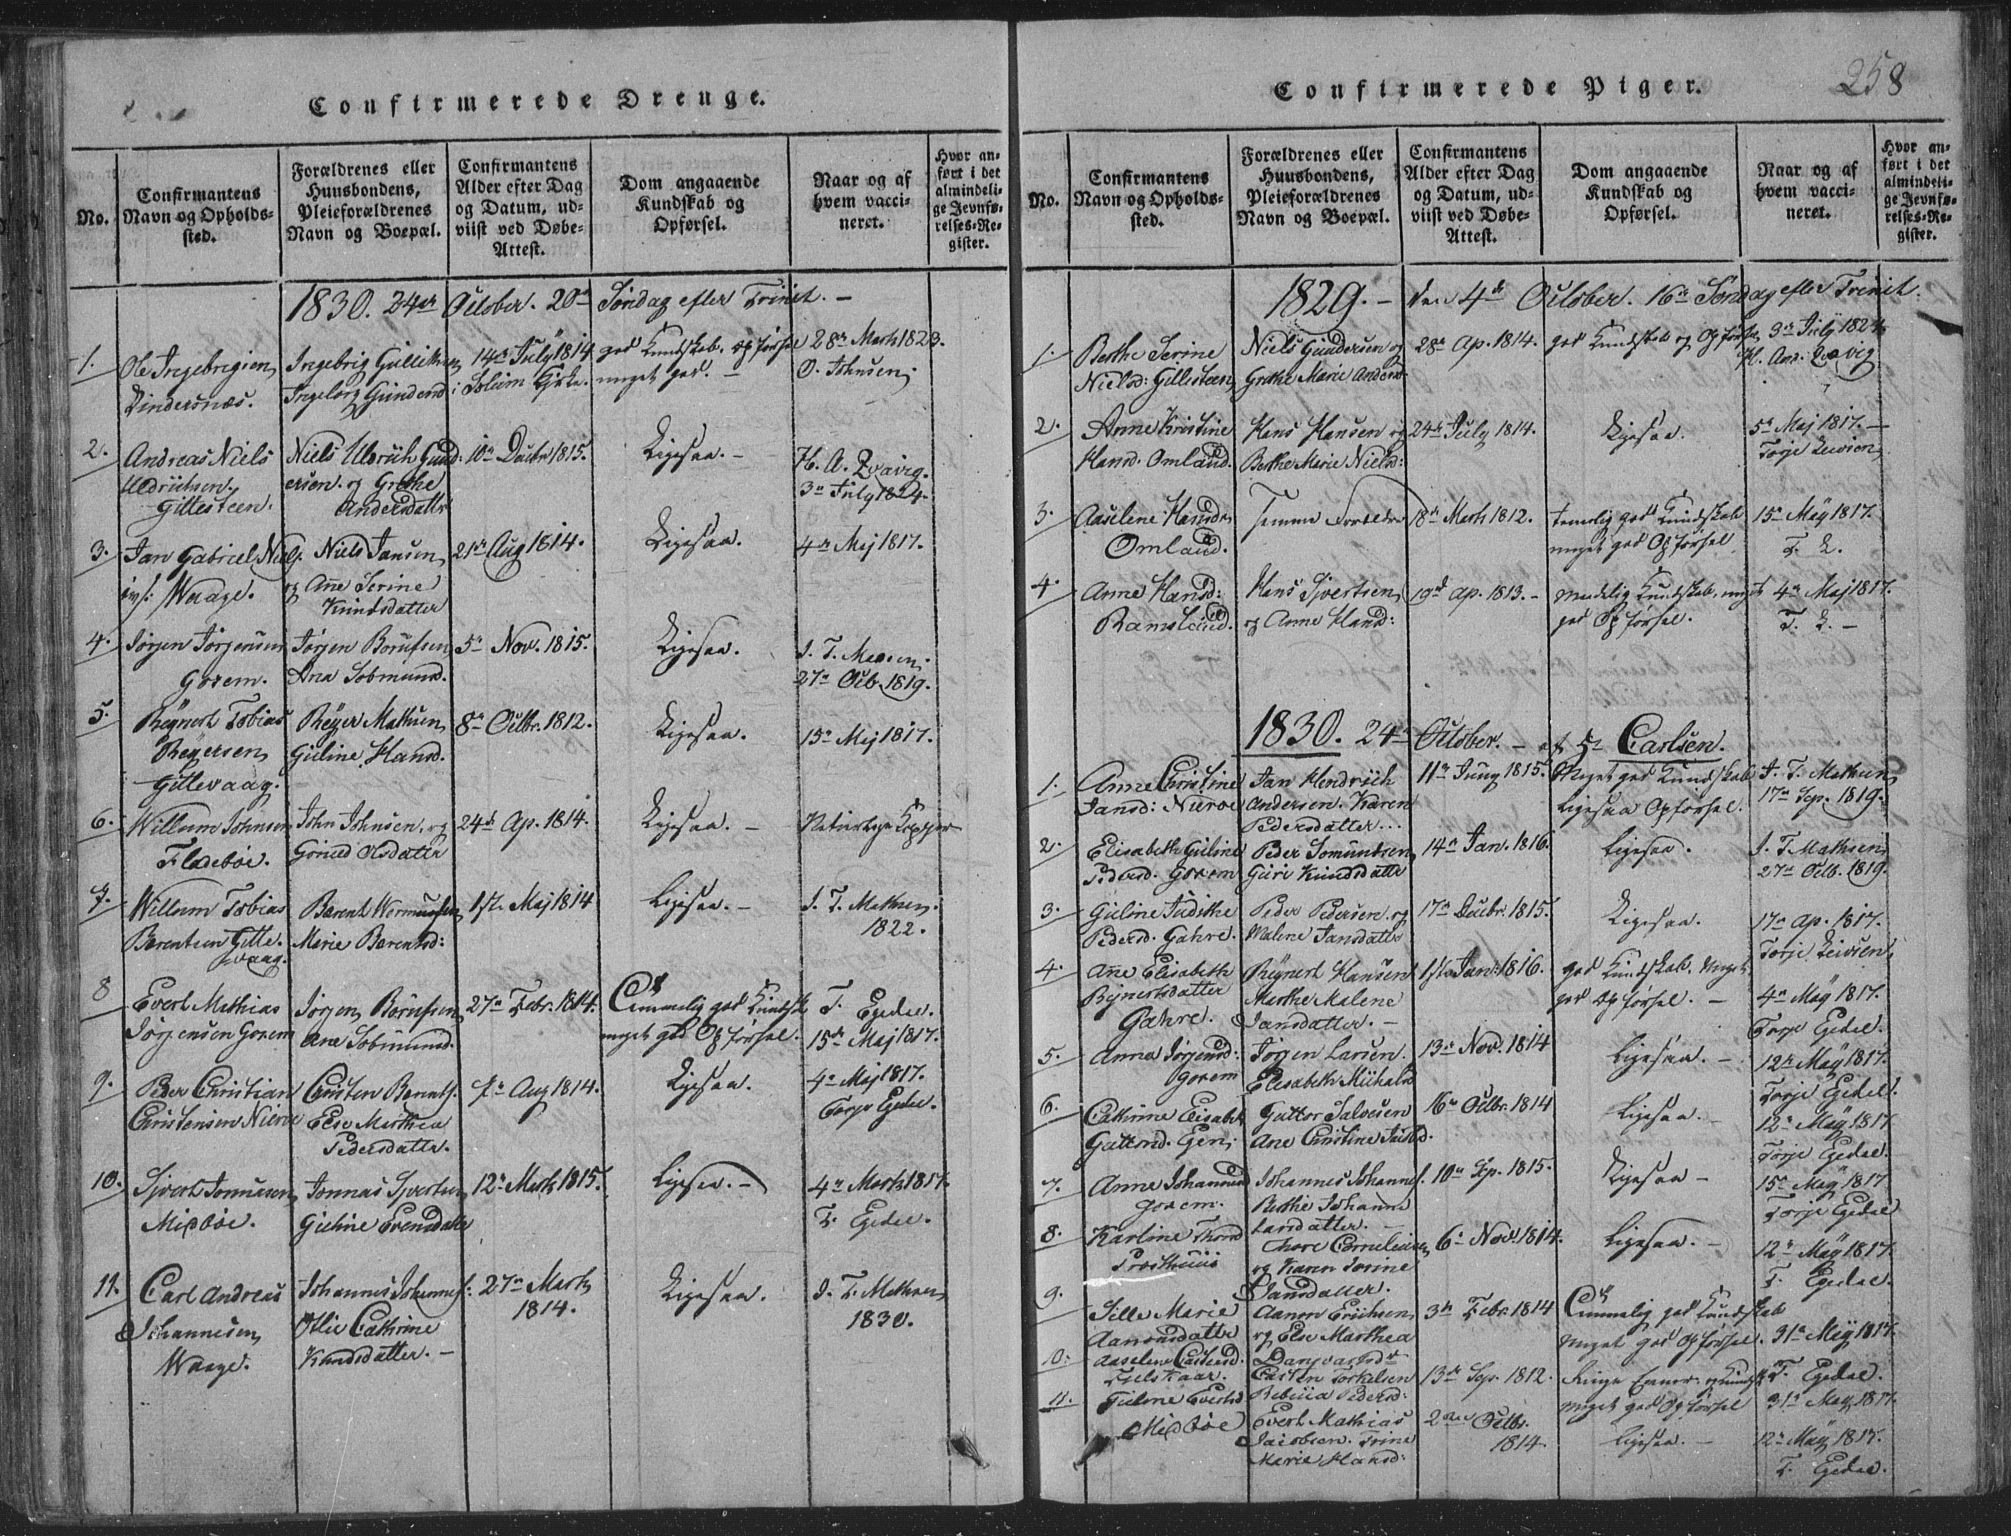 Confirmerede Drenge.
No.
Confirmantens
Navn og Opholds-
sted.
Forældrenes eller
Huusbondens,
Pleieforældrenes
Navn og Boepæl.
Confirmantens
Alder efter Dag
og Datum, ud-
viist ved Døbe-
Attest.
Dom angaaende
Kundskab og
Opførsel.
Naar og af
hvem vacci-
neret.
Hvor an-
ført i det
almindeli-
ge Jevnfø-
relses-Re-
gister.
1830. 24de October. 20n Søndag efter Trinit. –
1.
Ole Ingebrigten
Ingebrig Gullichsen
Ingeborg Gundersd:
14n July 1814
Solum Kirke.
god Kundskab. Opførsel
meget god. –
28n Marts 1823.
O. Johnsen
2.
Andreas Niels
Uldrichsen
Gittesteen.
Niels Uldrich Gund:
ersen. og Grethe
Andersdatter
10n Decbr 1815.
Ligesaa. –
H. A. Qvavig.
3n July 1824.
3.
Jan Gabriel Niels:
Waage.
Niels Jansen
og Añe Serine
Knudsdatter
21n Aug 1814.
Ligesaa.
4n Maj 1817.
4.
Jørgen Jørgensen
Gorem.
Jørgen Børufsen
Ana Sobmund.
5n Nov. 1815.
Ligesaa.
J. T. Mathsen
27n Octb. 1819.
5.
Reynert Tobias
Reyersen
Gittevaag.
Reyer Mathsen
Guline Hansd.
8n Octbr. 1812.
Ligesaa.
15n Maj 1817.
6.
Willum Johnsen
Fladebøe.
John Johnsen. og
Gorued Olsdatter
24d Ap. 1814.
Ligesaa. –
Naturlige Kopper
7.
Willum Tobias
Berentsen Gitte-
vaag.
Barent Wermundsen
Marie Berentsd:
1ste Maj 1814
Ligesaa. –
J. T. Mathsen.
1822.
8
Evert Mathias
Jørgensen Gorem
Jørgen Børufsen
Ane Sobmund.
27n Febr. 1814.
Temmelig god Kundsk.
meget god Opførsel.
T. Egdee.
15de Maj 1817.
9.
Peder Christian
Christensen Nieroe
Christen Berents.
Else Marthea
Pedersdatter.
7n Aug 1814.
Ligesaa.
4n Maj 1817.
Torje Egdee.
10.
Sjvert Jonnasen
Midbøe.
Jonnas Sjvertsen
Guline Evensdatter
12n Marts 1815.
Ligesaa. –
4n Marts 1817.
T. Egdee.
11.
Carl Andreas
Johannesen
Waage.
Johannes Johannes:
Otlie Cathrine
Knudsdatter. –
27n Marts
1814.
Ligesaa.
J. T. Mathsen
1830.
Confirmerede Piger.
258
No.
Confirmantens
Navn og Opholds-
sted.
Forældrenes eller
Huusbondens,
Pleieforældrenes
Navn og Boepæl.
Confirmantens
Alder efter Dag
og Datum, ud-
viist ved Døbe-
Attest.
Dom angaaende
Kundskab og
Opførsel.
Naar og af
hvem vacci-
neret.
Hvor an-
ført i det
almindeli-
ge Jevnfø-
relses-Re-
gister.
1829. – den 4de October. 16n Søndag efter Trinit.
1.
Berthe Serine
Nielsd: Gillesteen
Niels Gundersen og
Grethe Marie Andersd
28n Ap. 1814.
god Kundskab og Opførsel
3n July 1824
H. And. Qvavig
2.
Anne Kristine
Hansd. Omland.
Hans Hansen og
Berthe Marie Nielsd:
24de July 1814.
Ligesaa.
5n Maj 1817. –
Torje Leivsen
3.
Aaselene Hansd
Omland.
Samme Forældre
18n Marts 1812.
temelig god Kundskab
meget god Opførsel
15n May 1817.
T. L.
4.
Anne Hansd:
Ramsland.
Hans Sjvertsen
og Anne Hansd:
19d Ap. 1813. –
maadelig Kundskab. meget
god Opførsel.
4n Maj 1817.
T. L. –
1830. 24n October. – af Carlsen.
1.
Anne Christine
Jansd: Nieroe
Jan Hendrich
Andersen. Karen
Pedersdatter...
11n Juny 1815.
Meget god Kundskab
Ligesaa Opførsel.
J. T. Mathsen
17n Sep. 1819.
2.
Elisabeth Guline
Pedersd. Gorem
Peder Somundsen
Guri Knudsdatter
14n Jan. 1816.
Ligesaa.
J. T. Mathsen
27n Octb. 1819.
3.
Guline Judithe
Pedersd. Gahre.
Peder Pedersen. og
Malene Jansdatter
17n Decbr. 1815.
Ligesaa.
17n Ap. 1817.
Torje Leivsen
4.
Añe Elisabeth
Rejnertsdatter
Gahre.
Reynert Hansen
Marthe Malene
Jansdatter. –
1ste Jan: 1816.
god Kundskab. Meget
god Opførsel. –
4n May 1817.
Torje Egdee.
5.
Anna Jørgensd:
Gorem
Jørgen Larsen.
Elisabeth Michelsd
13n Nov. 1814
Ligesaa. –
12n May 1817.
Torje Egdee.
6.
Cathrine Elisabeth
Guttormd. Gen
Guttor Salvesen
Ane Christine
16n Octbr. 1814
Ligesaa.
12n May 1817
Torje Egdee.
7.
Anne Johannesd
Gorem.
Johannes Johannes.
Berthe Johanne
Larsdatter. –
10n Sep. 1815.
Ligesaa –
15n May 1817
Torje Egdee
8.
Karline Thorsd
Prosthuus
Thore Corneliusen
og Karen Torine
Jansdatter.
6n Nov. 1814.
Ligesaa. –
12n May 1817.
T. Egdee.
9.
Sille Marie
Aanensdatter
Aanen Erichsen
og Else Marthea
Danvartsdr
3n Febr. 1814
Temmelig god Kundskab
meget god Opførsel.
31n May 1817.
T. Egdee.
10.
Aaselene Castensd.
Casten Torkelsen
Rebecca Pedersd:
13n Sep. 1812.
meget god Opførsel
31n May 1817.
11.
Tuline Evertsd
Midbøe
Evert Mathias
Jacobsen. Trine
Marie Hansd:
2den Octbr.
1814.
Ligesaa. –
12n May 1817.
T. Egdee.